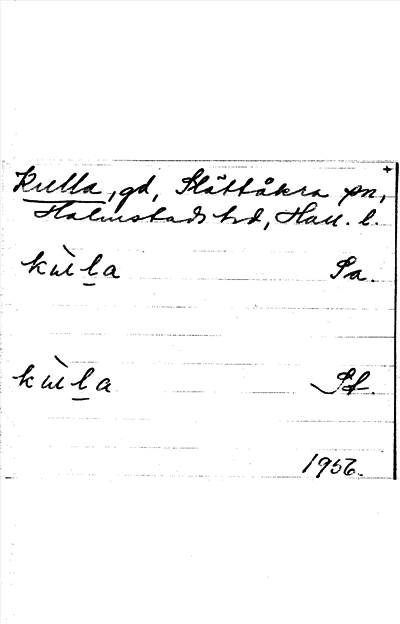 +
Kulla, gd, Slättåkra sn,
Halmstads hd, Hall. l.
kùl̲a Sa.
kùl̲a Sf.
1956.